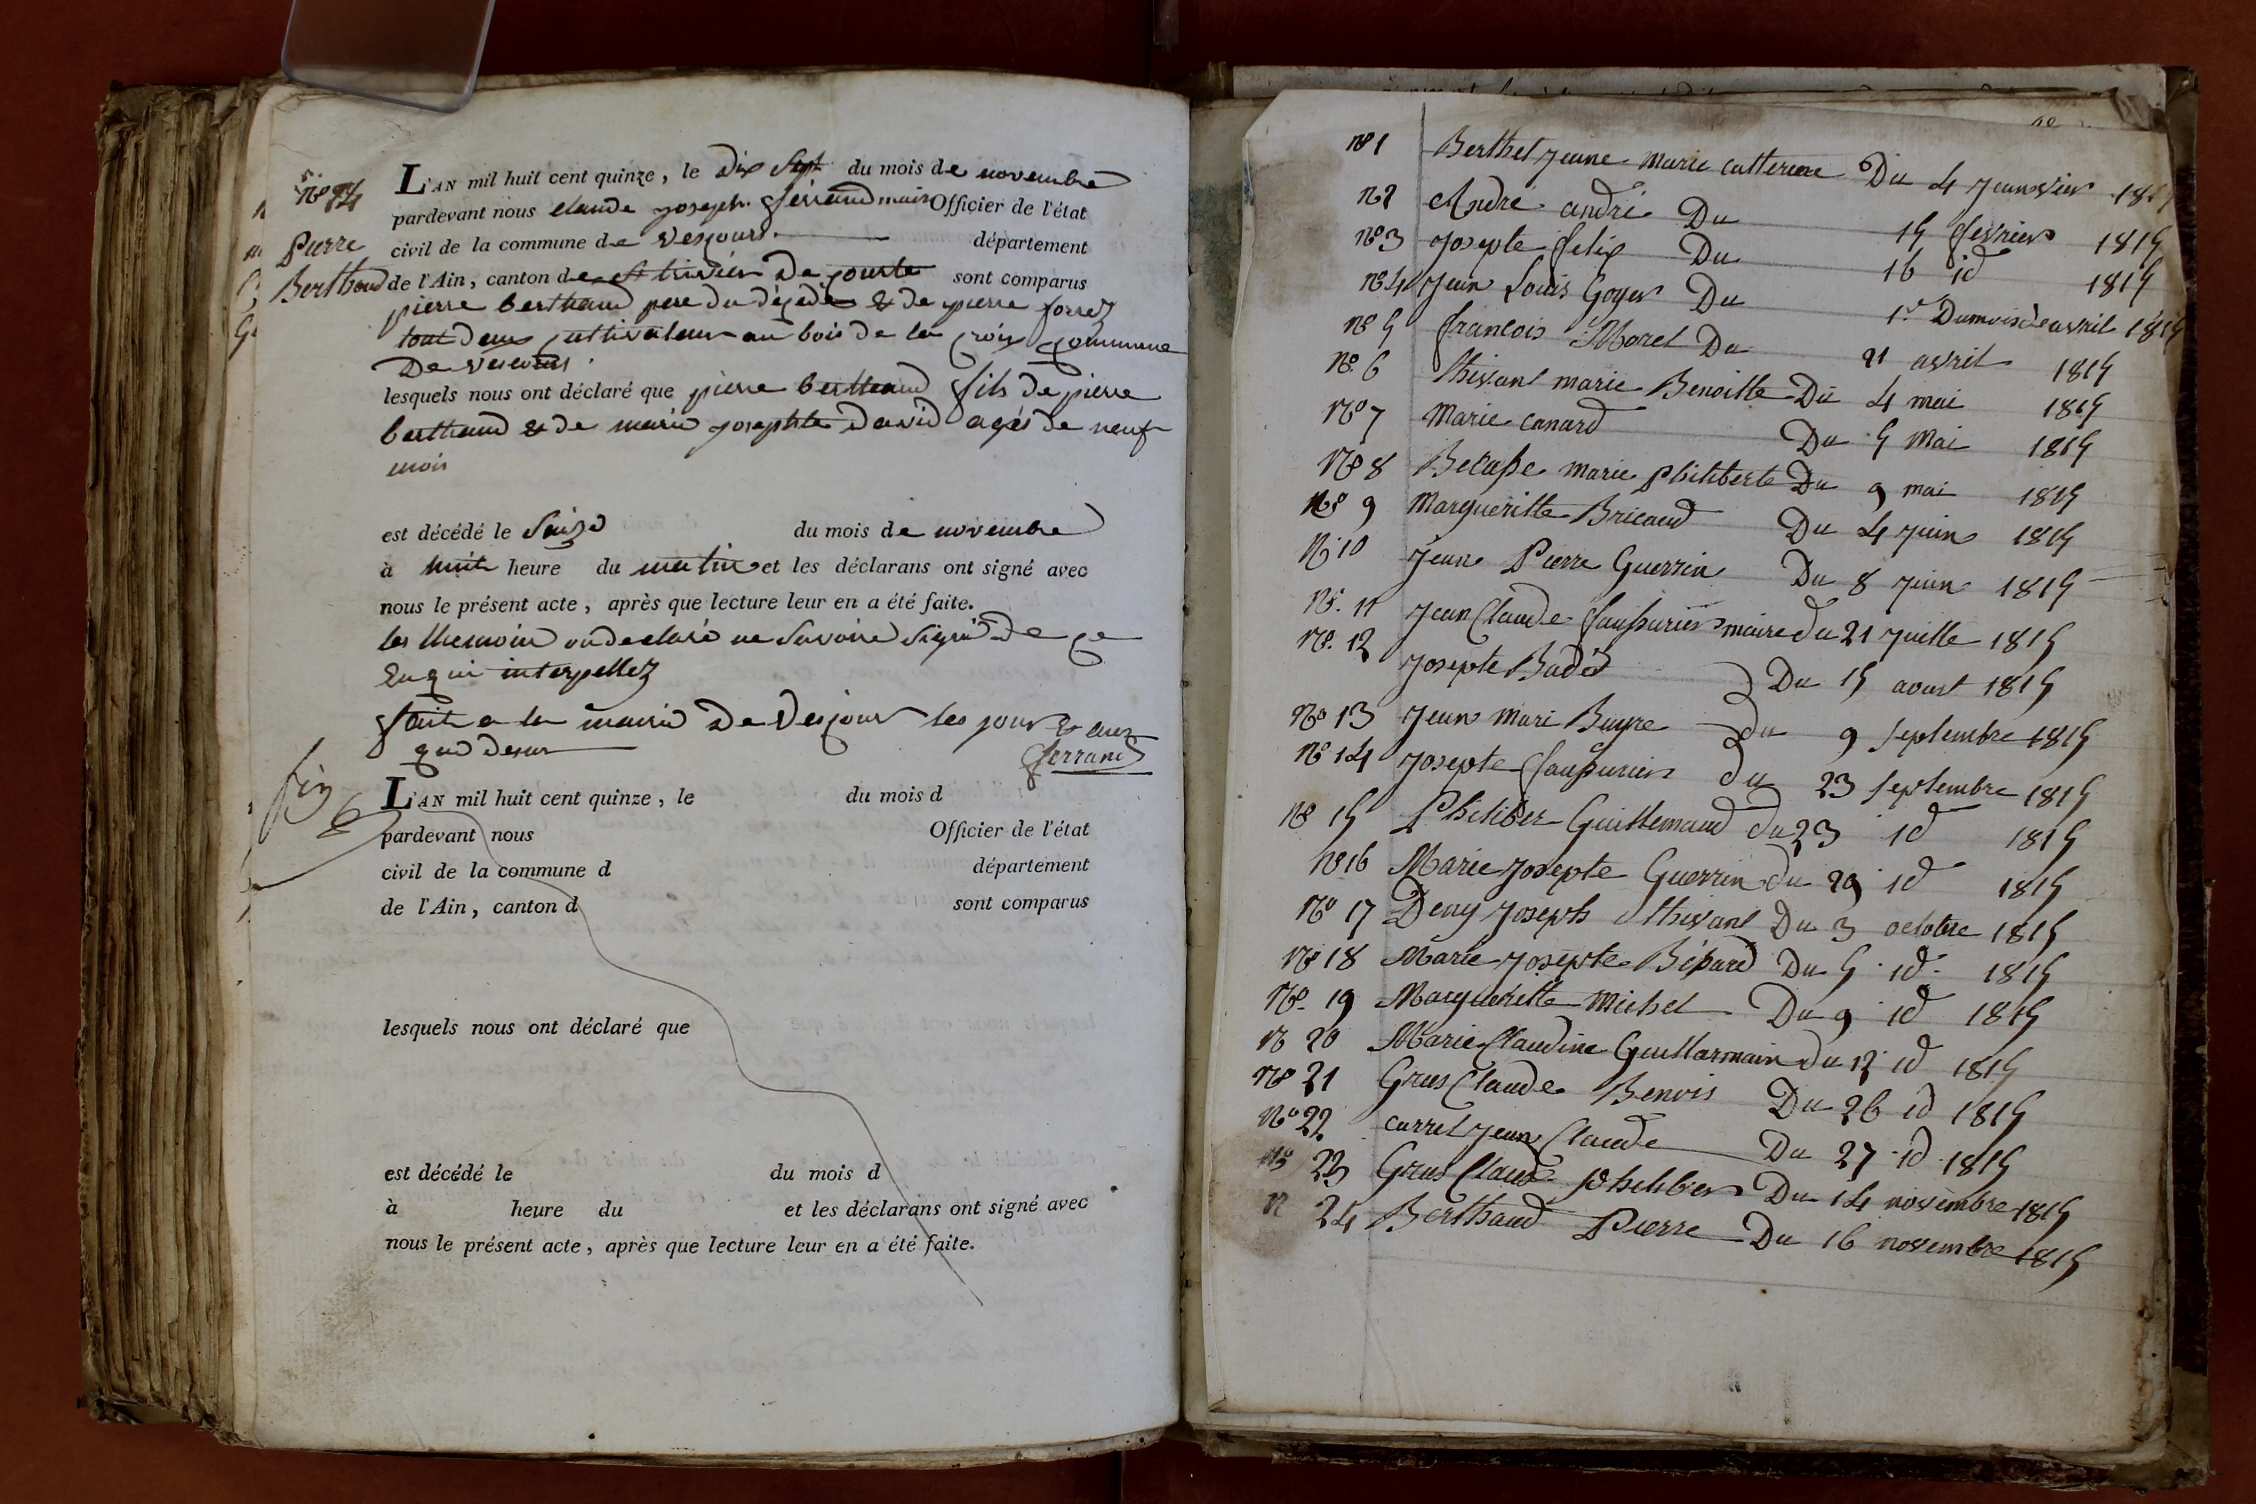 N° 24
Pierre
Berthaud
L'AN mil huit cent quinze, le dix sept du mois de novembre
pardevant nous claude joseph ferrand maire Officier de l'état
civil de la commune de vescours département
de l'Ain, canton de st trivier de courte sont comparus
pierre berthaud pere du décédé & de pierre forrez
tout deux cultivateur au bois de la croix commune
De vescours
lesquels nous ont déclaré que pierre berthaud fils de pierre
berthaud & de marie josephte david agés de neuf
mois
est décédé le saize du mois de novembre
à huit heure du matin et les déclarans ont signé avec
nous le présent acte, après que lecture leur en a été faite.
les themoin on declaré ne savoire signé de ce
Enqui interpellez
fait a la mairie De Vescour les jour & an
que desur
ferrand
fin
L'AN mil huit cent quinze, le du mois d
pardevant nous Officier de l'état
civil de la commune d département
de l'Ain, canton d sont comparus
lesquels nous ont déclaré que
est décédé le du mois d
à heure du et les déclarans ont signé avec
nous le présent acte, après que lecture leur en a été faite.
N° 1 Berthet jeane marie catterine Du 4 jeanvier 1815
N 2 André andré Du 15 fevrier 1815
N° 3 josepte felix Du 16 id 1815
N° 4 jean Louis Goyer Du 1er Du mois de avril 1815
N° 5 francois Moret Du 21 avril 1815
N° 6 thivant marie Benoitte Du 4 mai 1815
N° 7 Marie canard Du 5 Mai 1815
N° 8 Becasse marie philiberte Du 9 mai 1815
N° 9 Margueritte Bricaud Du 4 juin 1815
N° 10 jean Pierre Guerrin Du 8 juin 1815
N° 11 jean Claude faussurier maire du 21 juille 1815
N° 12 josepte Badéd Du 15 aoust 1815
N° 13 jean Mari Buyre du 9 septembre 1815
N° 14 josepte faussurier du 23 septembre 1815
N° 15 Philiber Guillemaud du 23 id 1815
N° 16 Marie josepte Guerrin du 29 id 1815
N° 17 Deny joseph thivant Du 3 octobre 1815
N° 18 Marie josepte Bépard Du 5 id 1815
N° 19 Margueritte Michel Du 9 id 1815
N 20 Marie Claudine Guillarmain du 12 id 1815
N° 21 Gras Claude Benois Du 26 id 1815
N° 22 carrel jean Claude Du 27 id 1815
N° 23 Gras Claude philiber Du 14 novembre 1815
N 24 Berthaud Pierre Du 16 novembre 1815